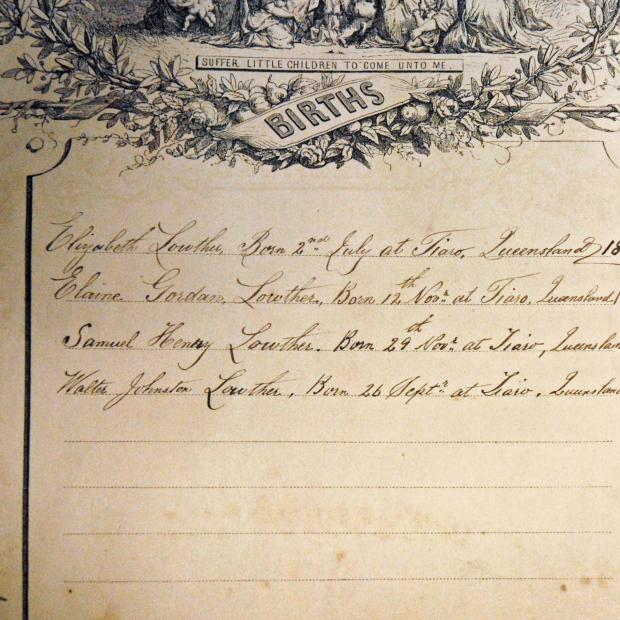 SUFFER LITTLE CHILDREN TO COME UNTO ME.
BIRTHS
Elizabeth Lowther, Born 2nd July at Tiaro, Queensland, 18
Elaine Gordon, Lowther, Born 12th Novr. at Tiaro, Queensland 1
Samuel Henry Lowther. Born 29th Novr. at Tiaro, Queenslan
Walter Johnston Lowther, Born 26 Septr. at Tiaro, Queensland